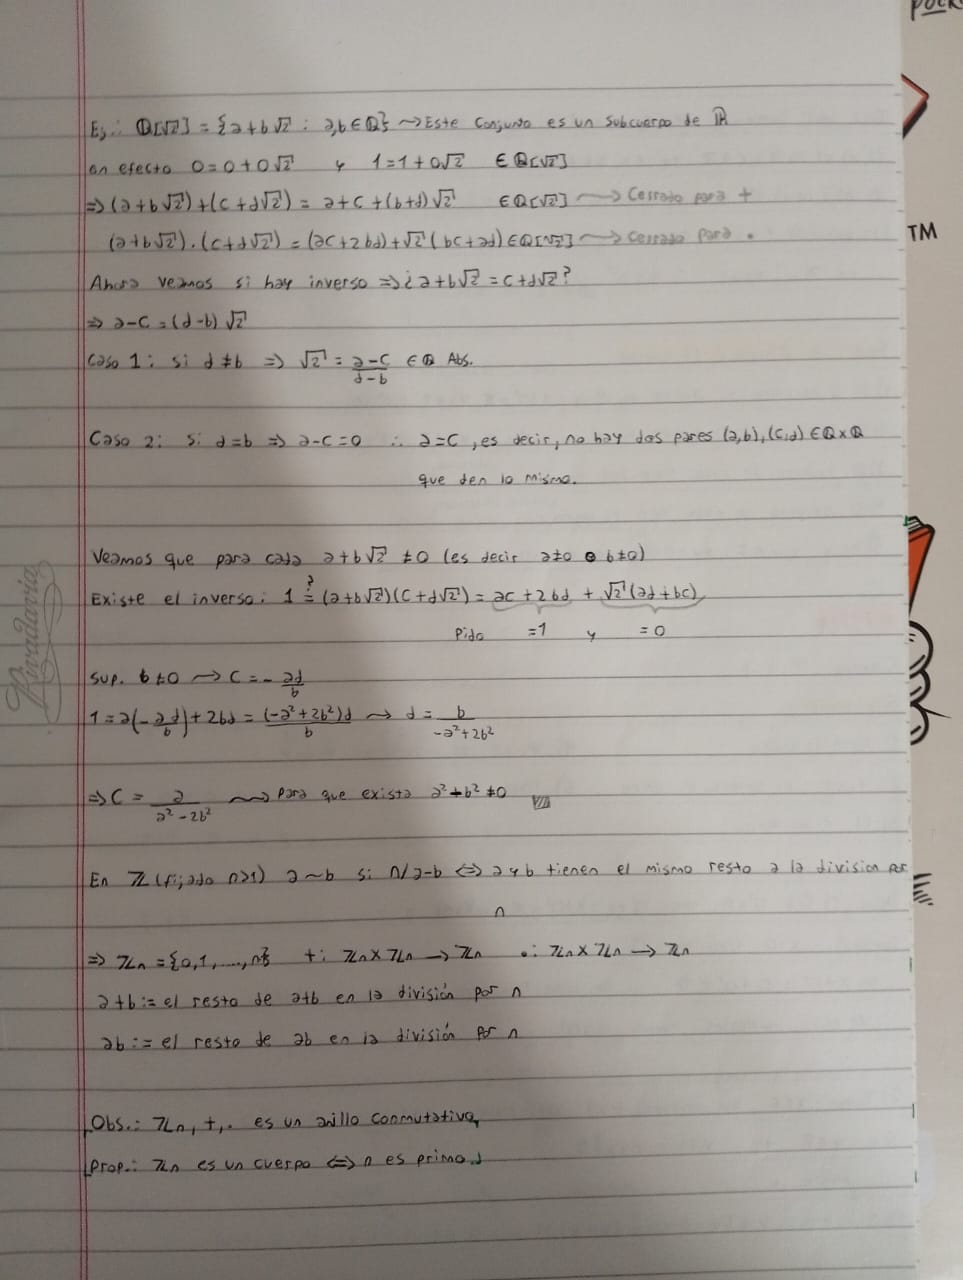 POCK
TM
Rivadavia
Ej.: ℚ[√2] = {a+b√2 : a,b ∈ ℚ} ⇝ Este conjunto es un subcuerpo de ℝ
en efecto 0 = 0+0√2 y 1 = 1+0√2 ∈ ℚ[√2]
⇒ (a+b√2)+(c+d√2) = a+c+(b+d)√2 ∈ ℚ[√2] ⇝ Cerrado para +
(a+b√2).(c+d√2) = (ac+2bd)+√2(bc+ad) ∈ ℚ[√2] ⇝ Cerrado para .
Ahora veamos si hay inverso ⇒ ¿a+b√2 = c+d√2?
⇒ a-c = (d-b)√2
Caso 1: si d≠b ⇒ √2 = (a-c)/(d-b) ∈ ℚ Abs.
Caso 2: si d=b ⇒ a-c=0 ∴ a=c, es decir, no hay dos pares (a,b),(c,d) ∈ ℚ×ℚ
que den lo mismo.
Veamos que para cada a+b√2 ≠0 (es decir a≠0 o b≠0)
Existe el inverso: 1 ≟ (a+b√2)(c+d√2) = ac+2bd + √2(ad+bc)
Pido =1 y =0
Sup. b≠0 ⇝ c = - ad/b
1 = a(-ad/b)+2bd = (-a²+2b²)d/b ⇝ d = b/(-a²+2b²)
⇒ c = a/(a²-2b²) ⇝ Para que exista a²+b² ≠0
En ℤ (fijado n>1) a∼b si n/a-b ⇔ a y b tienen el mismo resto a la division por
n
⇒ ℤn = {0,1,...,n} +: ℤn×ℤn → ℤn .: ℤn×ℤn → ℤn
a+b := el resto de a+b en la división por n
ab := el resto de ab en la división por n
Obs.: ℤn,+,. es un anillo conmutativo
Prop.: ℤn es un cuerpo ⇔ n es primo